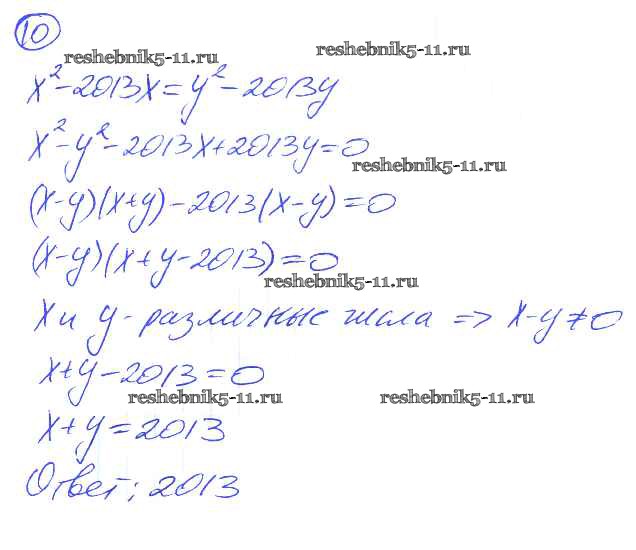 10
reshebnik5-11.ru reshebnik5-11.ru
x² - 2013x = y² - 2013y
x² - y² - 2013x + 2013y = 0
reshebnik5-11.ru
(x-y)(x+y) - 2013(x-y) = 0
(x-y)(x+y-2013) = 0
reshebnik5-11.ru
x и y - различные числа => x-y≠0
x+y-2013=0
reshebnik5-11.ru reshebnik5-11.ru
x+y=2013
Ответ: 2013